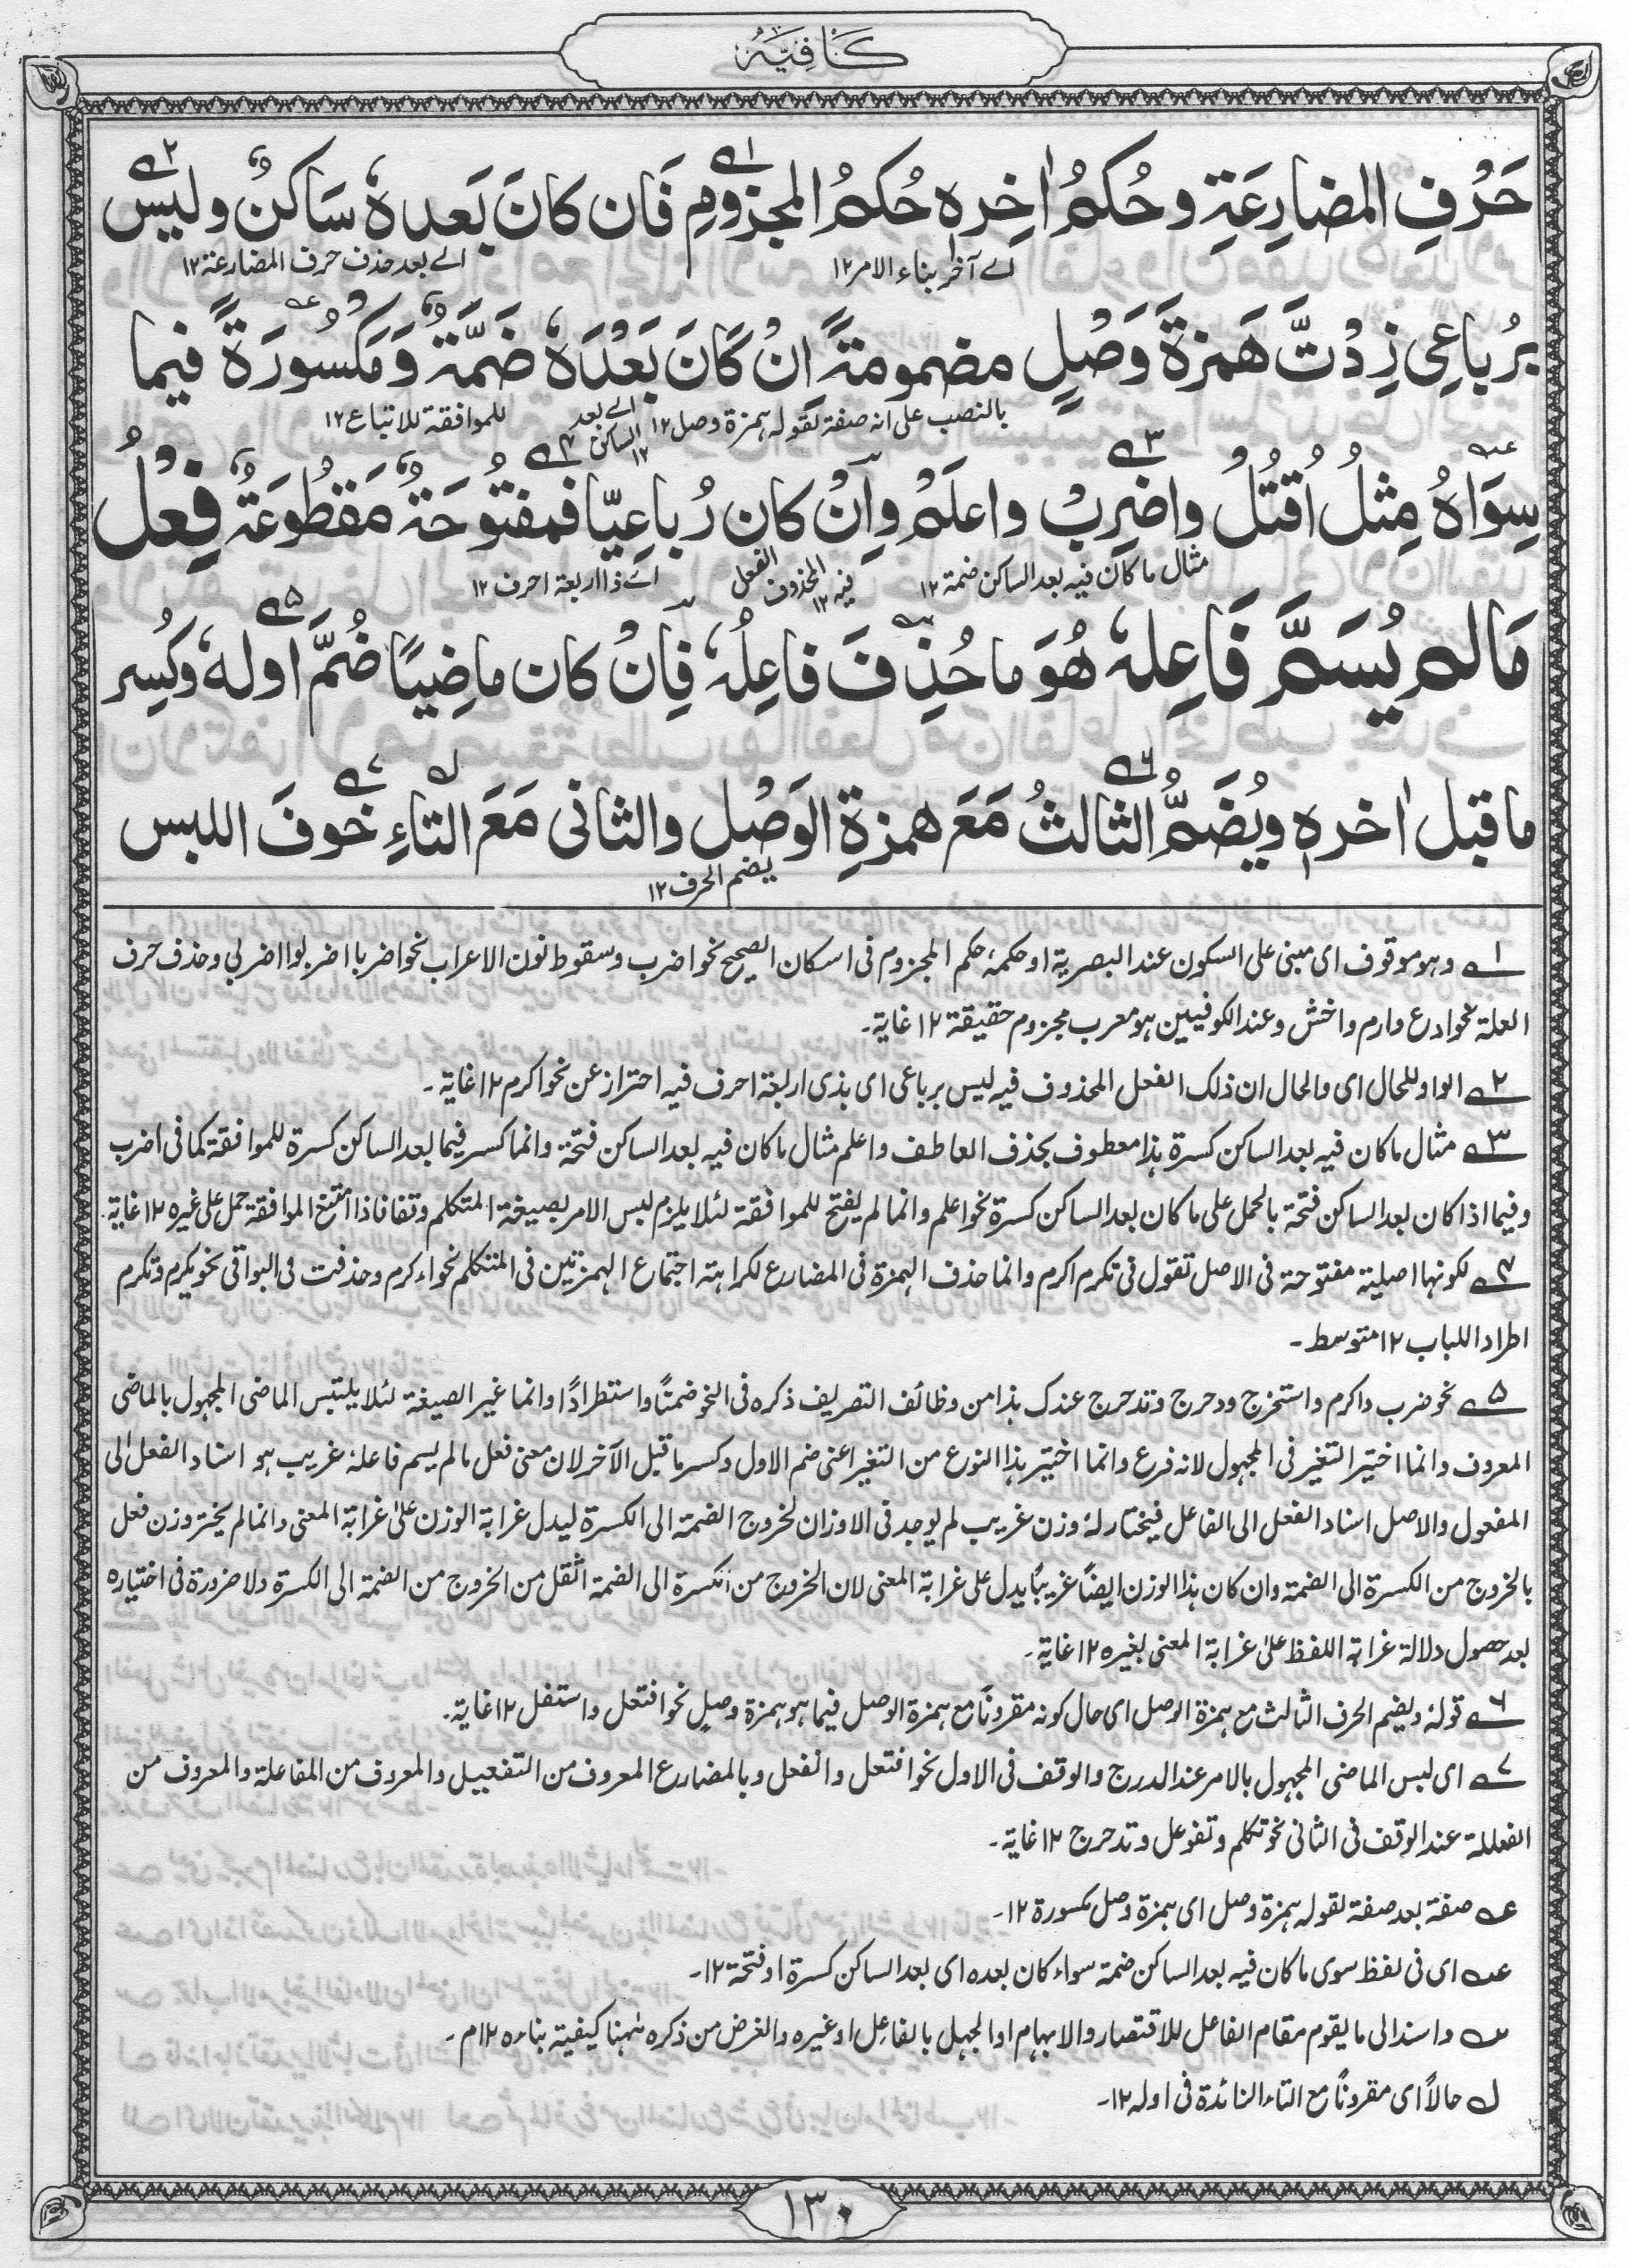 كَافِيَه
حَرْفِ المضارِعَةِ وحُكمُ اٰخِره حُكمُ المجزومِ فَان كانَ بَعده سَاكنٌ وليس
اے آخر بناء الامر١٢
اے بعد حذف حرف المضارعة١٢
برُباعِى زِدْتَّ هَمزةَ وَصْلٍ مضمومةً اِنْ كَانَ بَعْدَهٗ ضَمَّةٌ وَمَكسُورَةً فيما
بالنصب على انه صفة لقوله همزة وصل١٢
اے بعد الساكن١٢
للموافقة للاتباع١٢
سِوَاهُ مِثلُ اُقتُلْ واضرِبْ واعلَمْ وَاِنْ كان رُباعِيًّا فمفتُوحَةٌ مَقطُوعَةٌ فِعْلُ
مثال ما كان فيه بعد الساكن ضمة١٢
الفعل المحذوف فيه١٢
اے ذا اربعة احرف١٢
مَالم يُسَمَّ فَاعِلهٗ هُوَ ما حُذِفَ فاعِلُهٗ فَاِنْ كان ماضِيًا ضُمَّ اولهٗ وكُسِر
ماقبل اٰخره ويُضَمُّ الثالثُ مَعَ همزةِ الوَصْل والثانى مَعَ التاءِ خوفَ اللبس
يضم الحرف١٢
١ـه وهو موقوف اى مبنى على السكون عند البصرية او حكمهٗ حكم المجزوم فى اسكان الصحيح نحو اضرب وسقوط نون الاعراب نحو اضربا اضربوا اضربى وحذف حرف
العلة نحو ادع وارم واخش وعند الكوفيين هو معرب مجزوم حقيقة ١٢ غاية۔
٢ـه الواو للحال اى والحال ان ذلك الفعل المحذوف فيه ليس برباعى اى بذى اربعة احرف فيه احتراز عن نحو اكرم ١٢ غاية۔
٣ـه مثال ما كان فيه بعد الساكن كسرة هذا معطوف بحذف العاطف واعلم مثال ما كان فيه بعد الساكن فتحة وانما كسر فيما بعد الساكن كسرة للموافقة كما فى اضرب
وفيما اذا كان بعد الساكن فتحة بالحمل على ما كان بعد الساكن كسرة نحو اعلم وانما لم يفتح للموافقة لئلا يلزم لبس الامر بصيغة المتكلم وقفا فاذا امتنع الموافقة حمل على غيره ١٢ غاية۔
٤ـه لكونها اصلية مفتوحة فى الاصل تقول فى تكرم اكرم وانما حذف الهمزة فى المضارع لكراهته اجتماع الهمزتين فى المتكلم نحو اءكرم وحذفت فى البواقى نحو يكرم وتكرم
اطرادا للباب ١٢ متوسط۔
٥ـه نحو ضرب واكرم واستخرج ودحرج وتدحرج عندك هذا من وظائف التصريف ذكره فى النحو ضمنًا واستطرادًا وانما غير الصيغة لئلا يلتبس الماضى المجهول بالماضى
المعروف وانما اختير التغير فى المجهول لانه فرع وانما اختير هذا النوع من التغير اعنى ضم الاول وكسر ما قبل الآخر لان معنى فعل مالم يسم فاعلهٗ غريب هو اسناد الفعل الى
المفعول والاصل اسناد الفعل الى الفاعل فيختار لهٗ وزن غريب لم يوجد فى الاوزان لخروج الضمة الى الكسرة ليدل غرابة الوزن علىٰ غرابة المعنى وانما لم يختر وزن فعل
بالخروج من الكسرة الى الضمة وان كان هذا الوزن ايضًا غريبًا يدل على غرابة المعنى لان الخروج من الكسرة الى الضمة اثقل من الخروج من الضمة الى الكسرة ولا ضرورة فى اختياره
بعد حصول دلالة غرابة اللفظ علىٰ غرابة المعنى بغيره ١٢ غاية۔
٦ـه قولهٗ ويضم الحرف الثالث مع همزة الوصل اى حال كونه مقرونًا مع همزة الوصل فيما هو همزة وصل نحو افتعل واستفل ١٢ غاية۔
٧ـه اى لبس الماضى المجهول بالامر عند الدرج والوقف فى الاول نحو افتعل وانفعل وبالمضارع المعروف من التفعيل والمعروف من المفاعلة والمعروف من
الفعللة عند الوقف فى الثانى نحو تكلم وتفوعل وتدحرج ١٢ غاية۔
عـه صفة بعد صفة لقوله همزة وصل اى همزة وصل مكسورة ١٢۔
عـه اى فى لفظ سوى ما كان فيه بعد الساكن ضمة سواء كان بعده اى بعد الساكن كسرة او فتحة ١٢۔
سـه واسند الى ما يقوم مقام الفاعل للاقتصار والابهام او الجهل بالفاعل او غيره والغرض من ذكره ههنا كيفية بناءه ١٢ م۔
لـه حالًا اى مقرونًا مع التاء الزائدة فى اوله ١٢۔
١٣٠